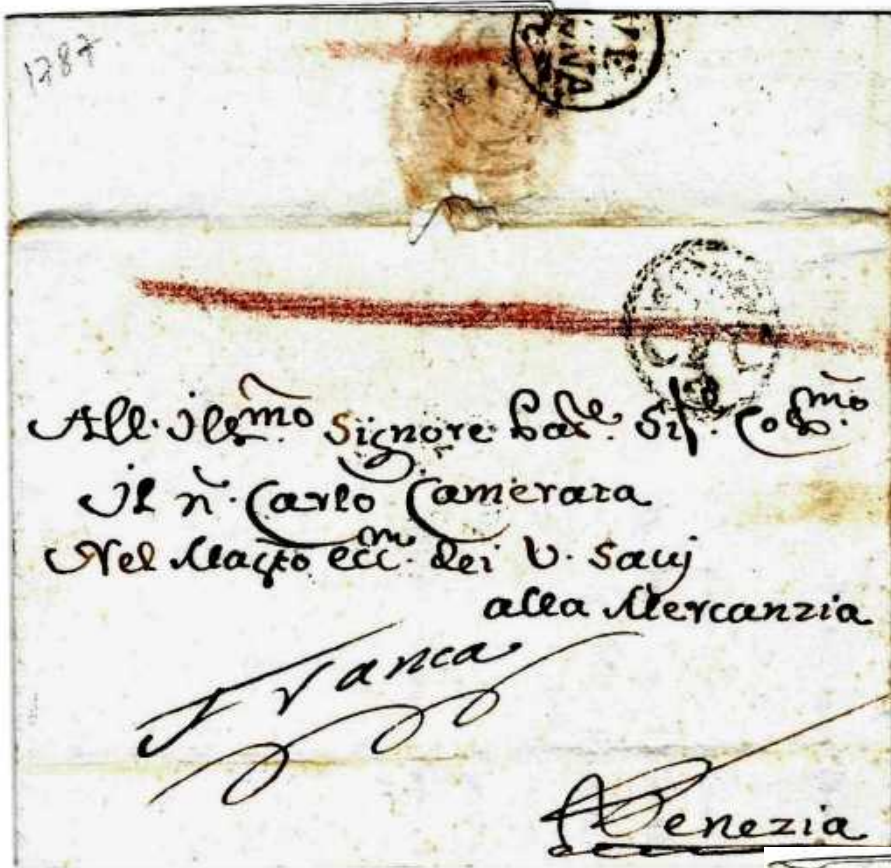 1787
VE
All. Ill.mo Signore
Il n. Carlo Camerata
Nel Mag.to ecc.mo dei V. Savj
alla Mercanzia
Franca
Venezia